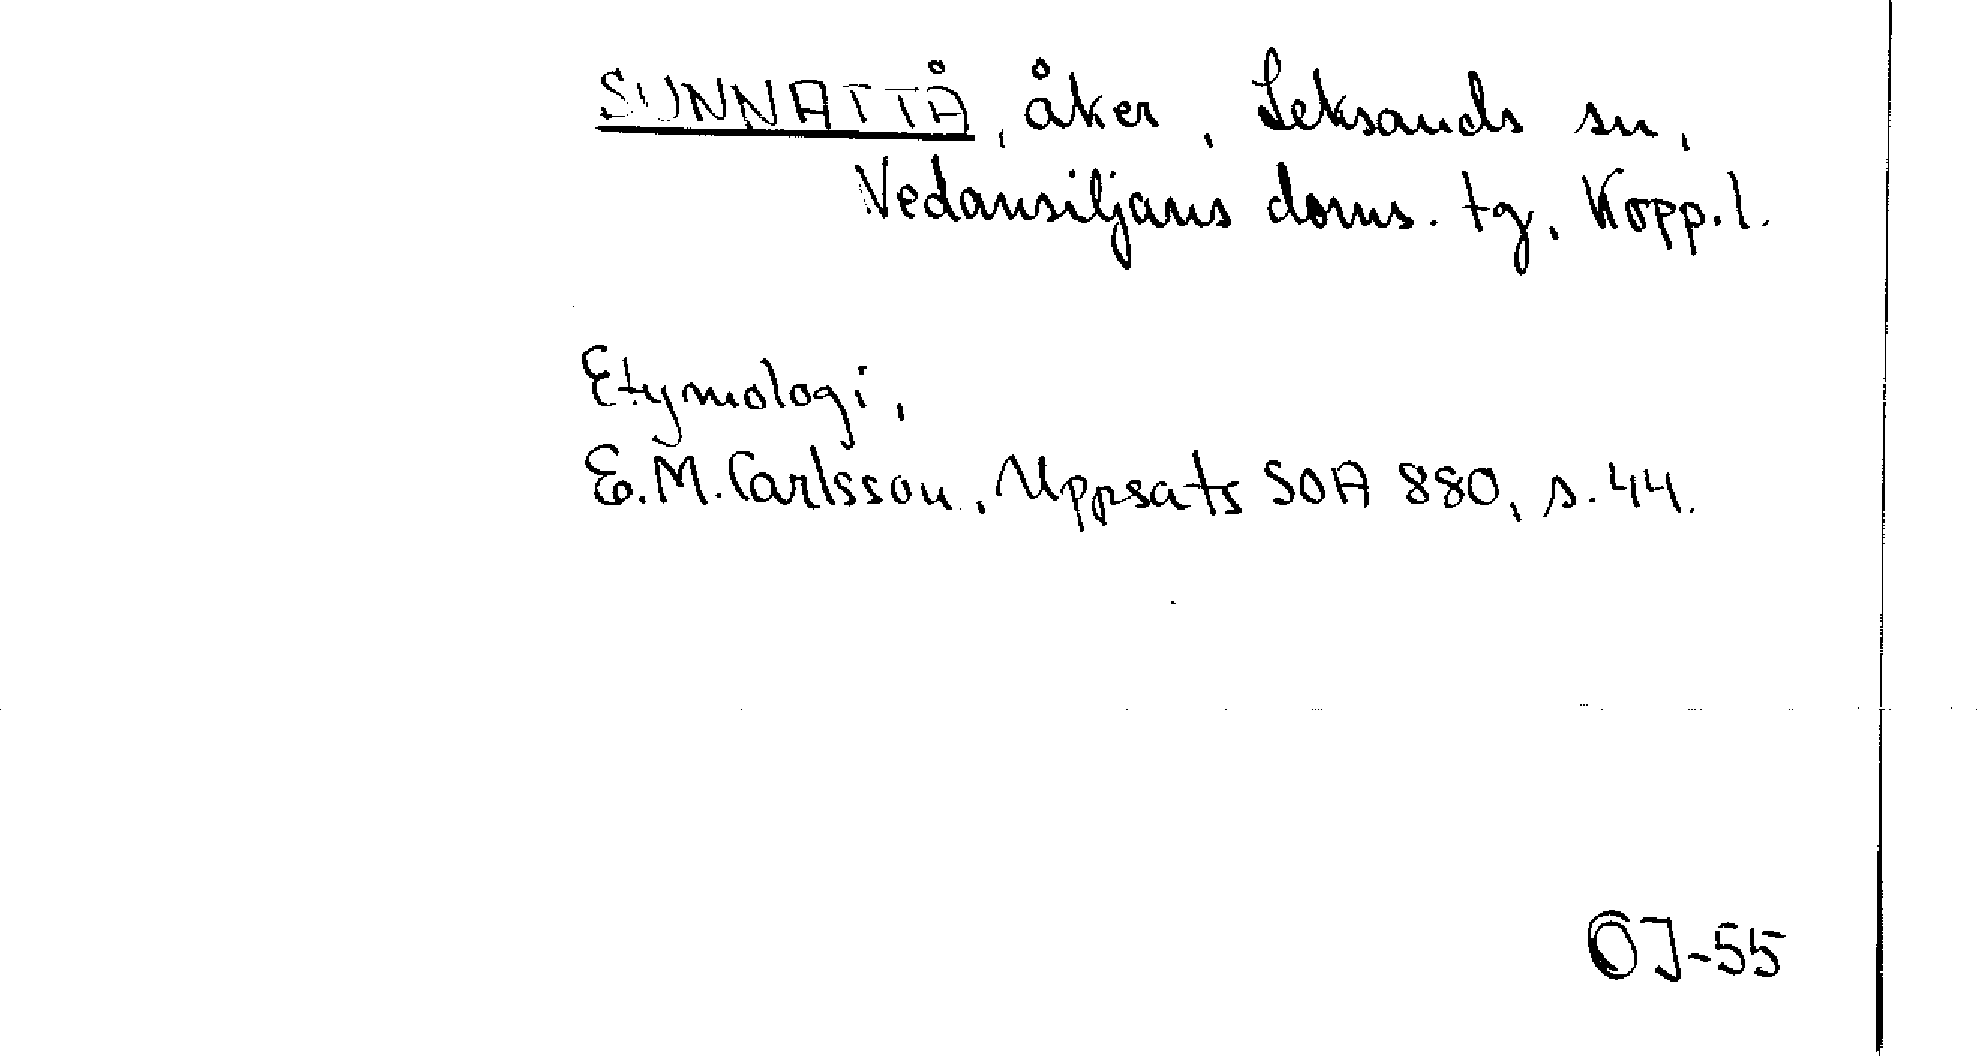 SUNNATTÅ, åker, Leksands sn,
Nedansiljans doms. tg, Kopp. l.
Etymologi,
E.M. Carlsson, Uppsats SOA 880, s. 44.
OJ-55